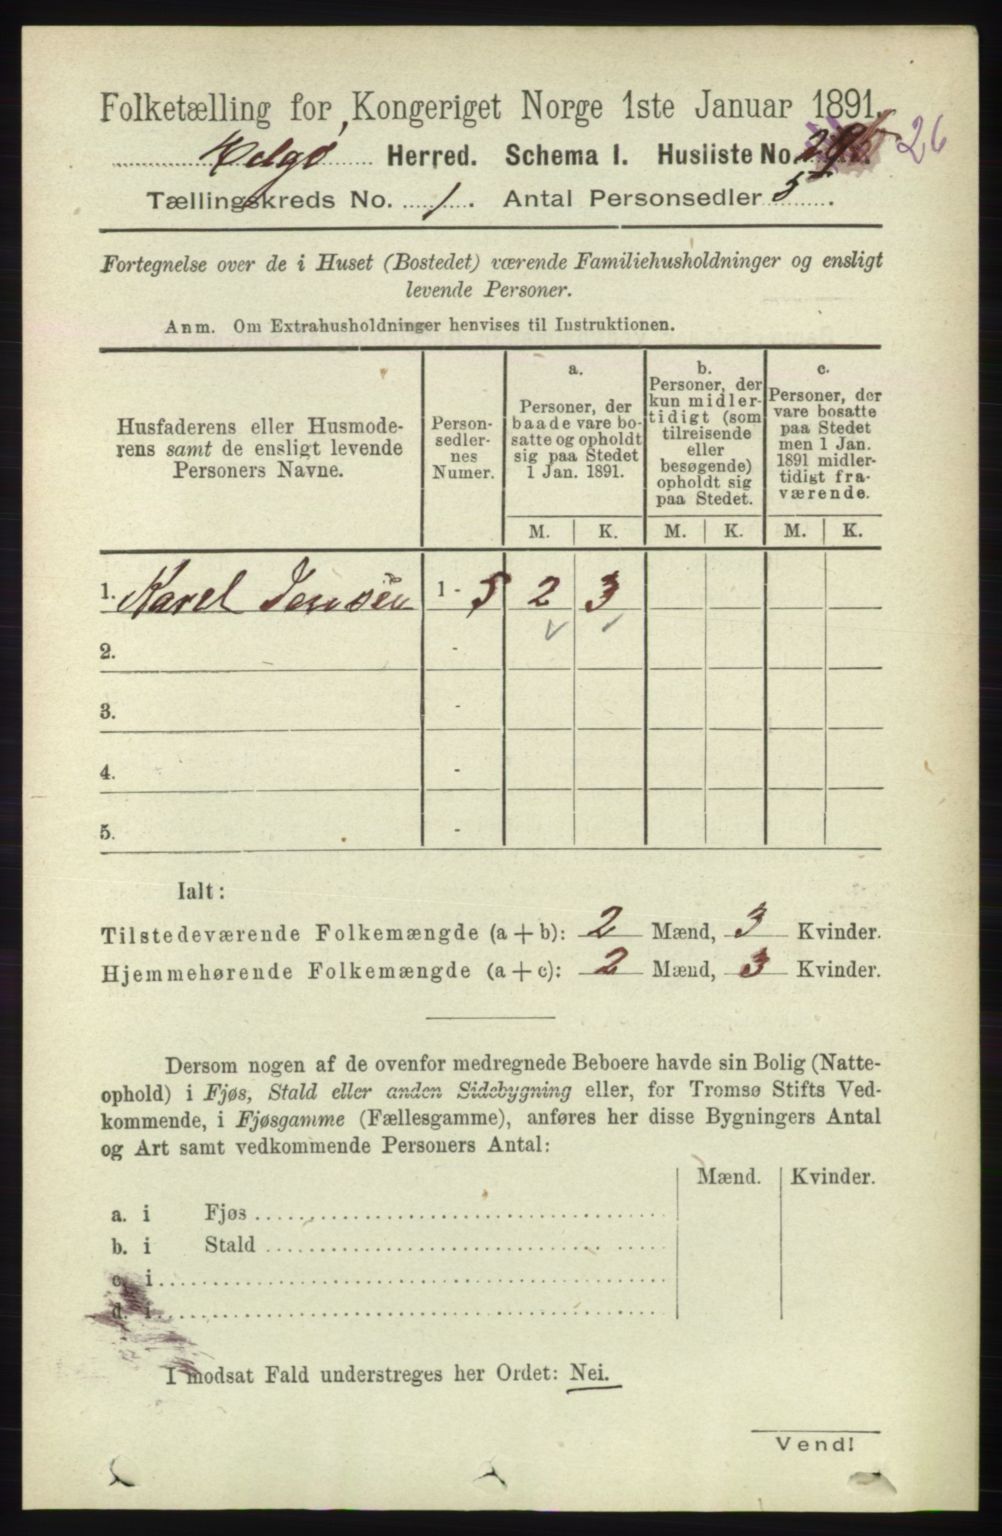 Folketælling for Kongeriget Norge 1ste Januar 1891.
Helgø Herred. Schema I. Husliste No. 26
Tællingskreds No. 1. Antal Personsedler 5.
Fortegnelse over de i Huset (Bostedet) værende Familiehusholdninger og ensligt
levende Personer.
Anm. Om Extrahusholdninger henvises til Instruktionen.
Husfaderens eller Husmode-
rens samt de ensligt levende
Personers Navne.
Person-
sedler-
nes
Numer.
a.
Personer, der
baade vare bo-
satte og opholdt
sig paa Stedet
1 Jan. 1891.
b.
Personer, der
kun midler-
tidigt (som
tilreisende
eller
besøgende)
opholdt sig
paa Stedet.
c.
Personer, der
vare bosatte
paa Stedet
men 1 Jan.
1891 midler-
tidigt fra-
værende.
M. K. M. K. M. K.
1. Karel Jensen 1 - 5 2 3
2. -
3. -
4. -
5. -
Ialt:
Tilstedeværende Folkemængde (a + b): 2 Mænd, 3 Kvinder.
Hjemmehørende Folkemængde (a + c): 2 Mænd, 3 Kvinder.
Dersom nogen af de ovenfor medregnede Beboere havde sin Bolig (Natte-
ophold) i Fjøs, Stald eller anden Sidebygning eller, for Tromsø Stifts Ved-
kommende, i Fjøsgamme (Fællesgamme), anføres her disse Bygningers Antal
og Art samt vedkommende Personers Antal:
Mænd. Kvinder.
a. i Fjøs
b. i Stald
c. i
d. i
I modsat Fald understreges her Ordet: Nei.
Vend!